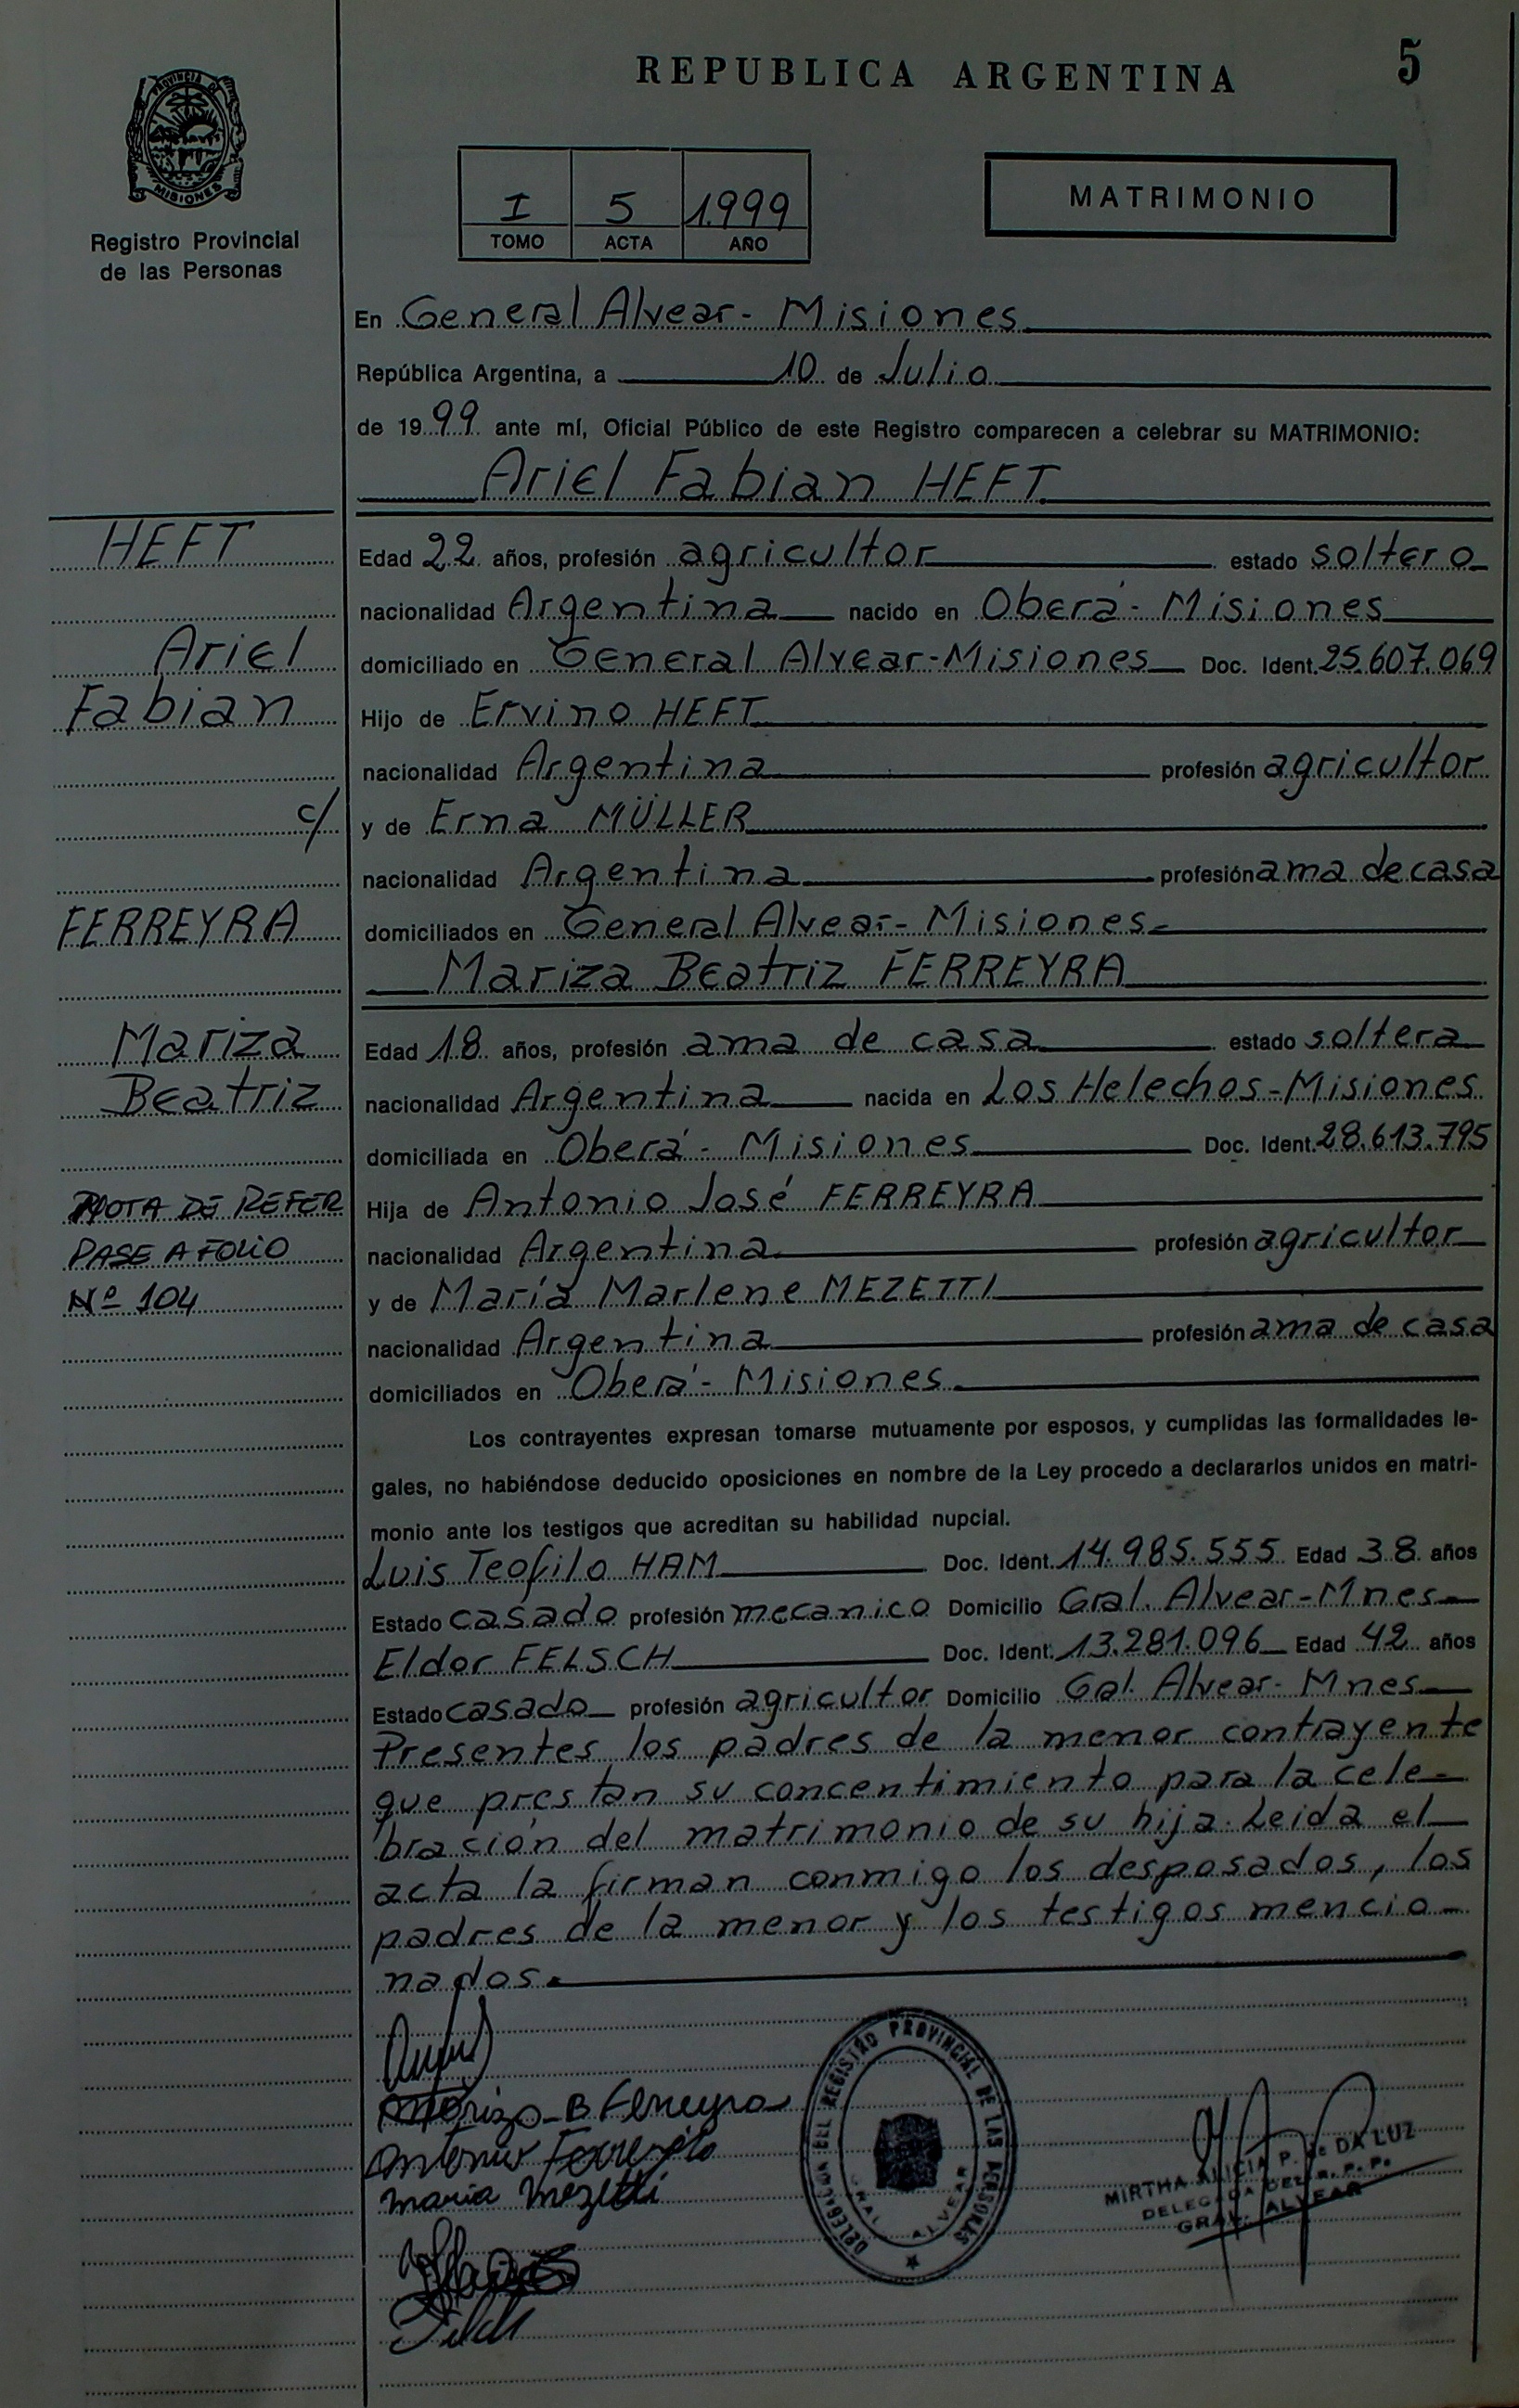 REPUBLICA ARGENTINA
5
PROVINCIA D
MISIONES
Registro Provincial
de las Personas
I 5 1.999
TOMO ACTA AÑO
MATRIMONIO
En General Alvear - Misiones
República Argentina, a 10 de Julio
de 1999 ante mí, Oficial Público de este Registro comparecen a celebrar su MATRIMONIO:
Ariel Fabian HEFT
HEFT
Edad 22 años, profesión agricultor estado soltero
nacionalidad Argentina nacido en Oberá - Misiones
Ariel
domiciliado en General Alvear - Misiones Doc. Ident. 25.607.069
Fabian
Hijo de Ervino HEFT
nacionalidad Argentina profesión agricultor
c/
y de Erna MÜLLER
nacionalidad Argentina profesión ama de casa
FERREYRA
domiciliados en General Alvear - Misiones
Mariza Beatriz FERREYRA
Mariza
Edad 18 años, profesión ama de casa estado soltera
Beatriz
nacionalidad Argentina nacida en Los Helechos - Misiones
domiciliada en Oberá - Misiones Doc. Ident. 28.613.795
NOTA DE REFER
Hija de Antonio José FERREYRA
PASE A FOLIO
nacionalidad Argentina profesión agricultor
Nº 104
y de María Marlene MEZETTI
nacionalidad Argentina profesión ama de casa
domiciliados en Oberá - Misiones
Los contrayentes expresan tomarse mutuamente por esposos, y cumplidas las formalidades le-
gales, no habiéndose deducido oposiciones en nombre de la Ley procedo a declararlos unidos en matri-
monio ante los testigos que acreditan su habilidad nupcial.
Luis Teofilo HAM Doc. Ident. 14.985.555 Edad 38 años
Estado casado profesión mecanico Domicilio Gral. Alvear - Mnes
Eldor FELSCH Doc. Ident. 13.281.096 Edad 42 años
Estado casado profesión agricultor Domicilio Gal. Alvear - Mnes
Presentes los padres de la menor contrayente
que prestan su concentimiento para la cele-
bración del matrimonio de su hija. Leida el
acta la firman conmigo los desposados, los
padres de la menor y los testigos mencio-
nados.
Mariza B Ferreyra
Antonio Ferreyra
maria mezetti
DELEGACION DEL REGISTRO PROVINCIAL DE LAS PERSONAS
GRAL. ALVEAR
MIRTHA ALICIA P. de DA LUZ
DELEGADA DEL R. P. P.
GRAL. ALVEAR